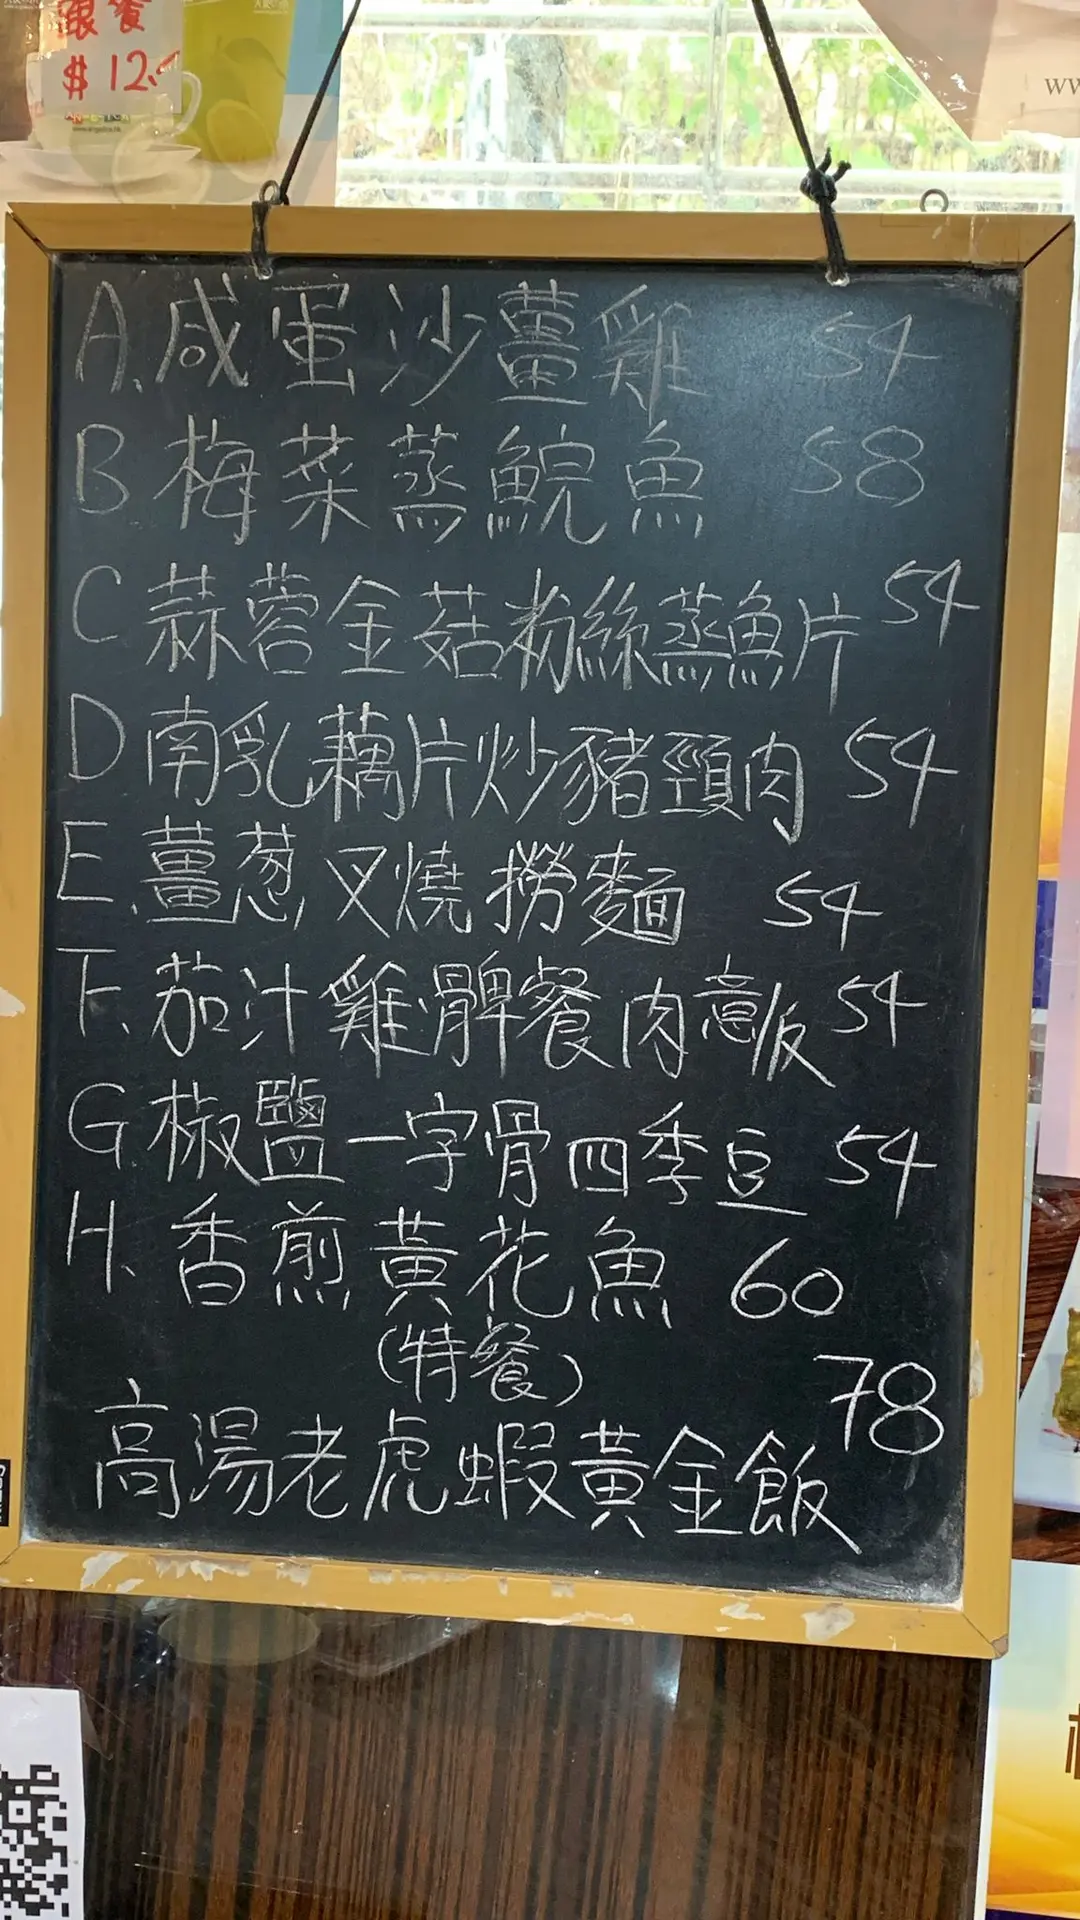 跟餐
$12.
www
A.咸蛋沙薑雞 54
B 梅菜蒸鯇魚 58
C 蒜蓉金菇粉絲蒸魚片 54
D 南乳藕片炒豬頸肉 54
E.薑葱叉燒撈麵 54
F.茄汁雞髀餐肉意飯 54
G 椒鹽一字骨四季豆 54
H.香煎黃花魚 60
(特餐)
高湯老虎蝦黃金飯 78